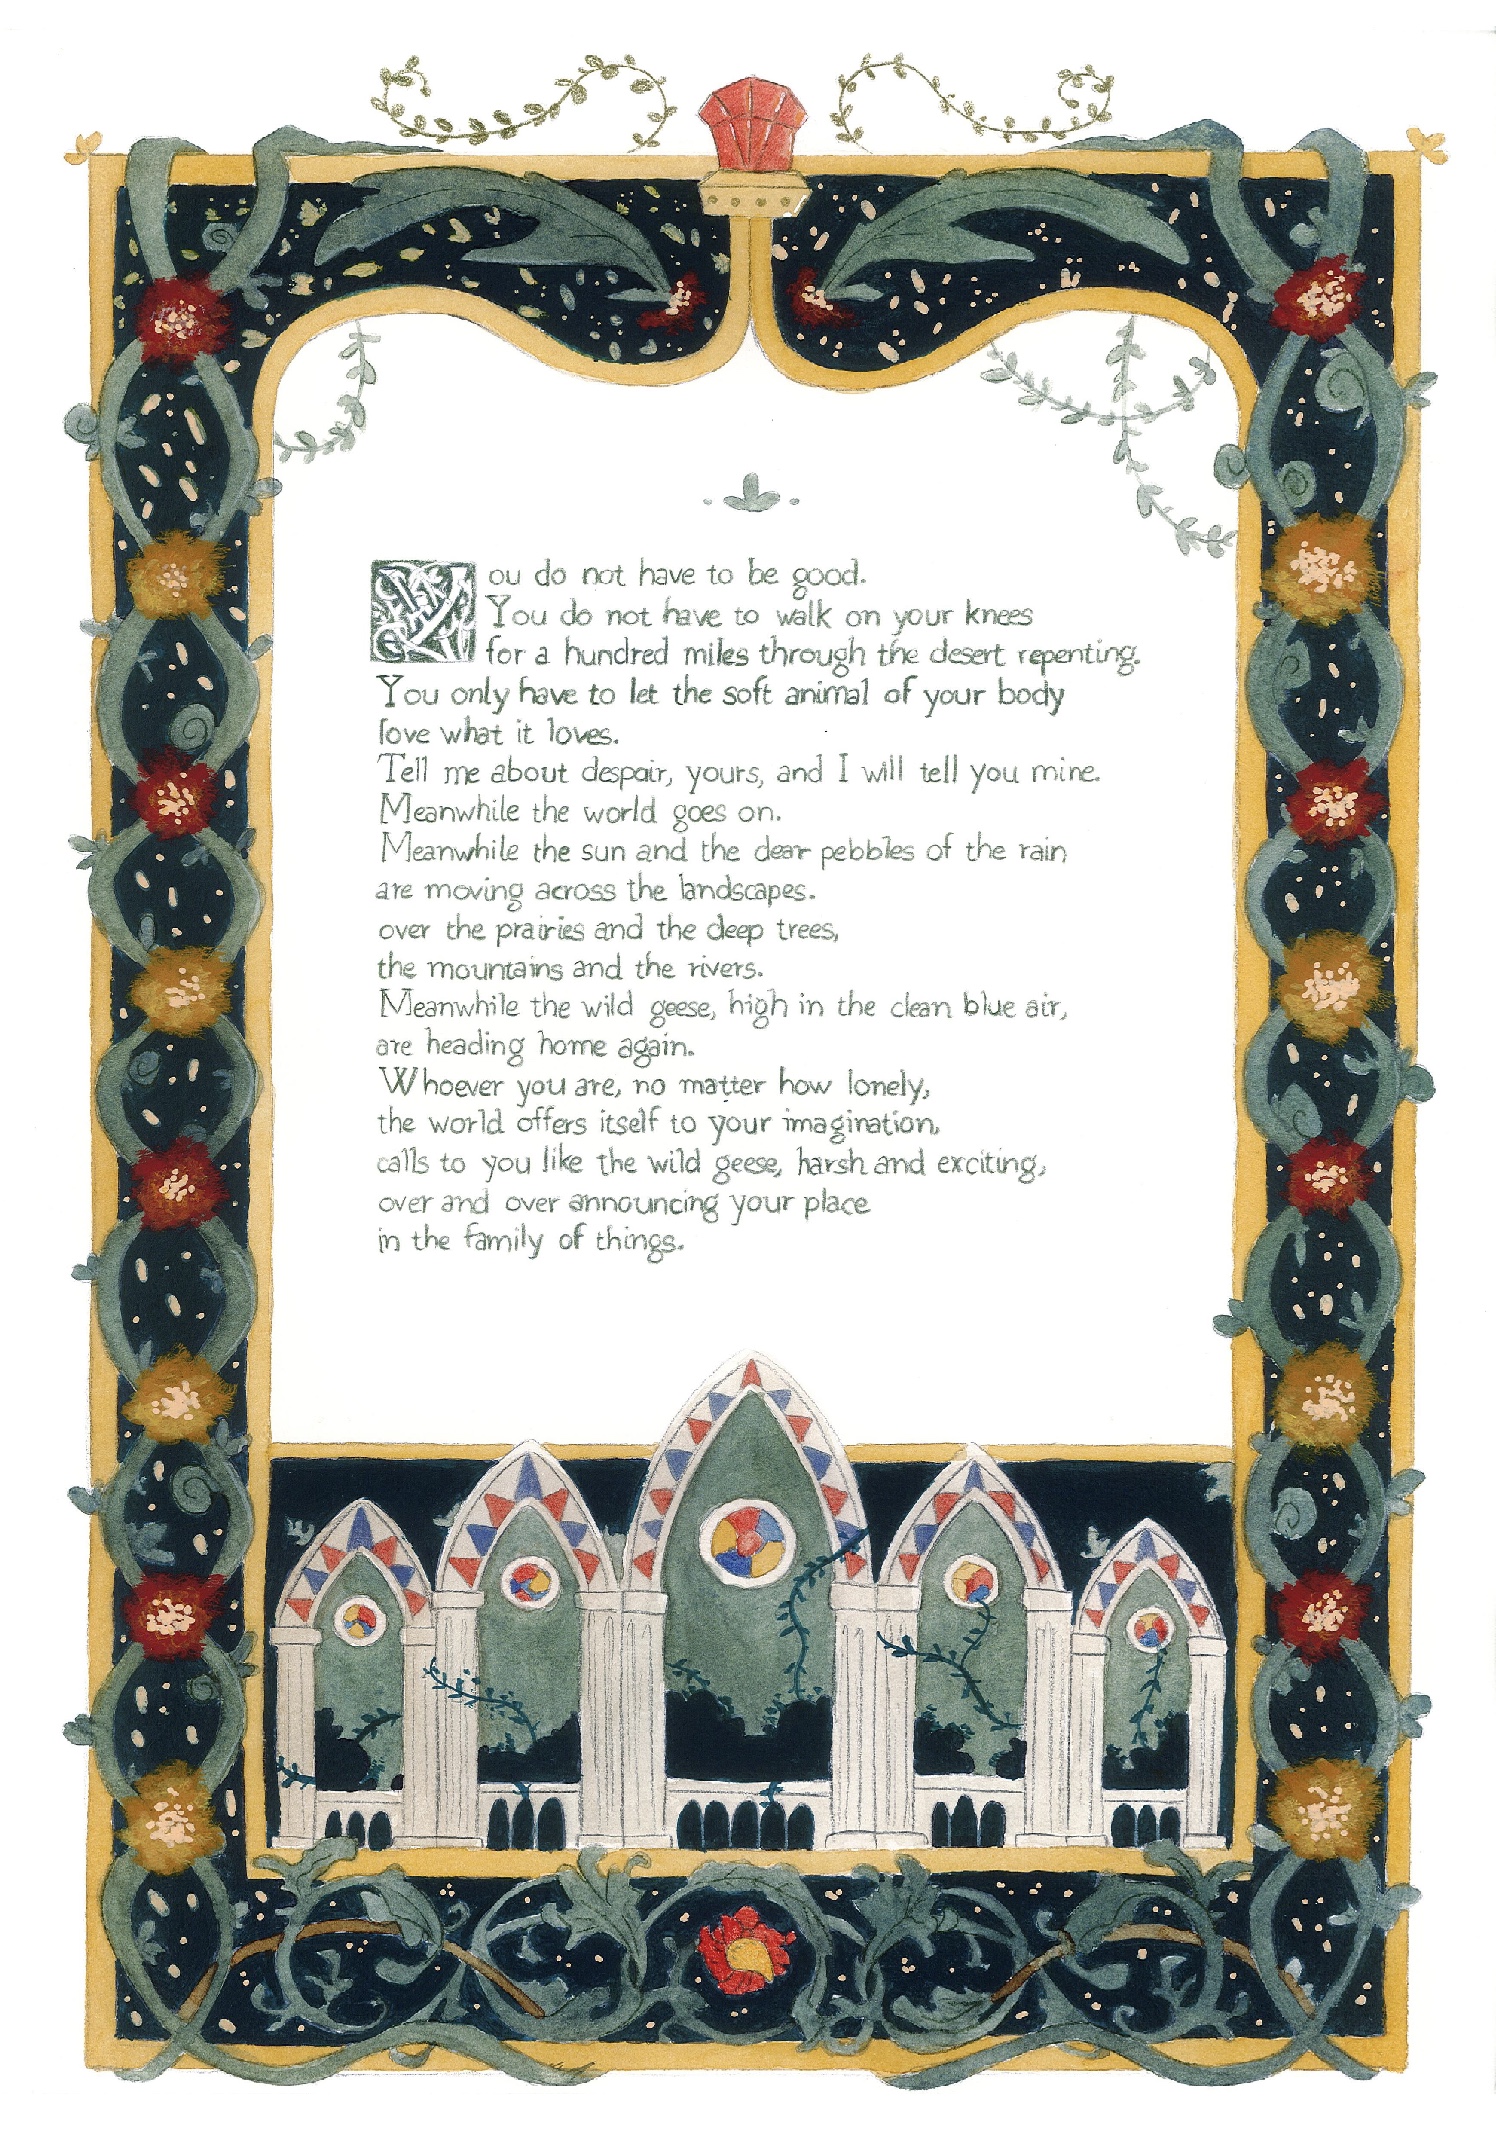 You do not have to be good.
You do not have to walk on your knees
for a hundred miles through the desert repenting.
You only have to let the soft animal of your body
love what it loves.
Tell me about despair, yours, and I will tell you mine.
Meanwhile the world goes on.
Meanwhile the sun and the dear pebbles of the rain
are moving across the landscapes.
over the prairies and the deep trees,
the mountains and the rivers.
Meanwhile the wild geese, high in the clean blue air,
are heading home again.
Whoever you are, no matter how lonely,
the world offers itself to your imagination,
calls to you like the wild geese, harsh and exciting,
over and over announcing your place
in the family of things.